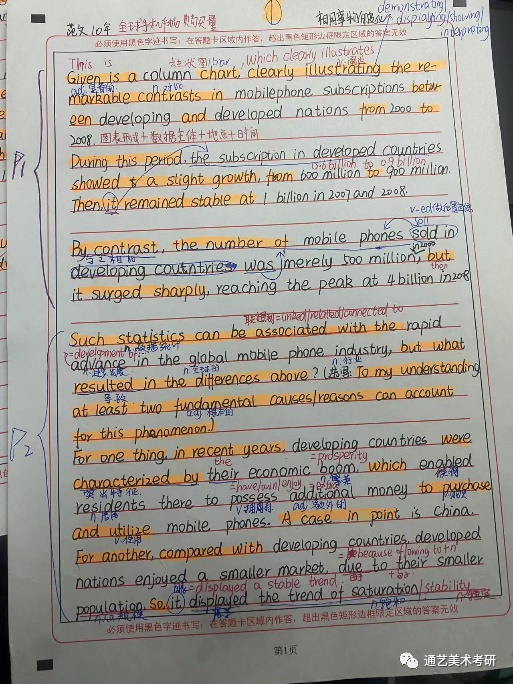 英文10年 全球手机 购买量
demonstrating
displaying/showing
interpreting
必须使用黑色字迹书写;在答题卡区域内作答,超出黑色矩形边框限定区域的答案无效
This is 柱状图/bar , which clearly illustrates
Given is a column chart, clearly illustrating the re-
markable contrasts in mobilephone subscriptions betw-
een developing and developed nations from 2000 to
2008. 图表形式+数据主体+地点+时间
P1
During this period, the subscription in developed countries
0.6 billion to 0.9 billion
showed a slight growth, from 600 million to 900 million.
Then it remained stable at 1 billion in 2007 and 2008.
v-ed
sell
By contrast, the number of mobile phones sold in
in 2000
developing countries was merely 500 million, but
then
it surged sharply, reaching the peak at 4 billion in 2008
联系到=linked/related/connected to
Such statistics can be associated with the rapid
=development of
advance in the global mobile phone industry, but what
n.行业
resulted in the differences above? To my understanding
导致
at least two fundamental causes/reasons can account
for this phenomenon.
P2
For one thing, in recent years, developing countries were
the =prosperity
characterized by their economic boom, which enabled
=have/own/enjoy
residents there to possess additional money to purchase
n.居民 adj.额外的
and utilize mobile phones. A case in point is China.
v.使用
For another, compared with developing countries, developed
=because of/owing to+n
nations enjoyed a smaller market, due to their smaller
=displayed a stable trend
population. So, (it) displayed the trend of saturation/stability
n.饱和
必须使用黑色字迹书写;在答题卡区域内作答,超出黑色矩形边框限定区域的答案无效
第1页
通艺美术考研